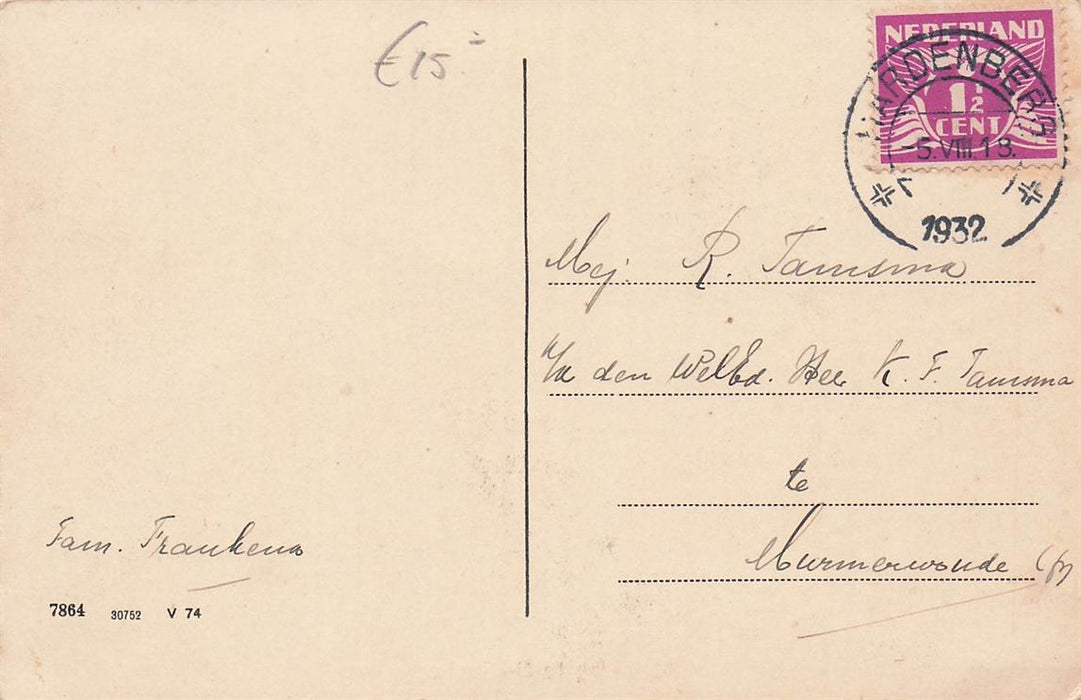 € 15 -
NEDERLAND
1 1/2
CENT
HARDENBERG
-5.VIII.18.
1932
Mej. R. Tamsma
a/d den WelEd. Heer K. F. Tamsma
te
Murmerwoude (fr)
Fam. Frankena
7864 30752 V 74